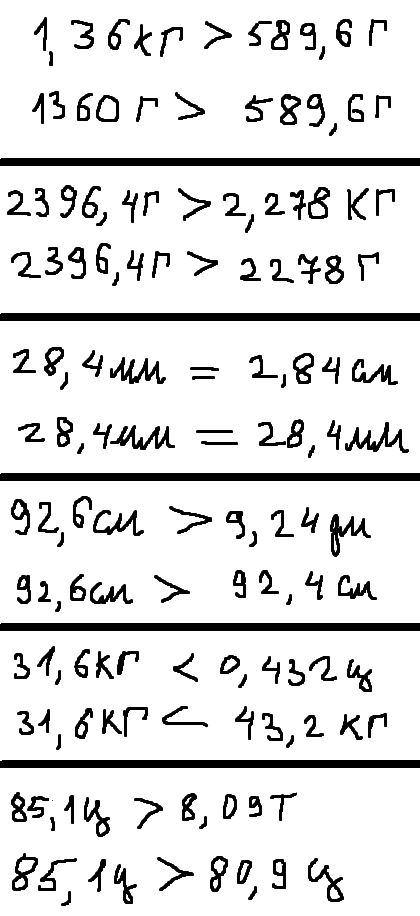 1,36кг > 589,6г
1360г > 589,6г
2396,4г > 2,278 кг
2396,4г > 2278 г
28,4мм = 2,84 см
28,4мм = 28,4мм
92,6см > 9,24дм
92,6см > 92,4 см
31,6кг < 0,432ц
31,6кг < 43,2 кг
85,1ц > 8,09т
85,1ц > 80,9 ц